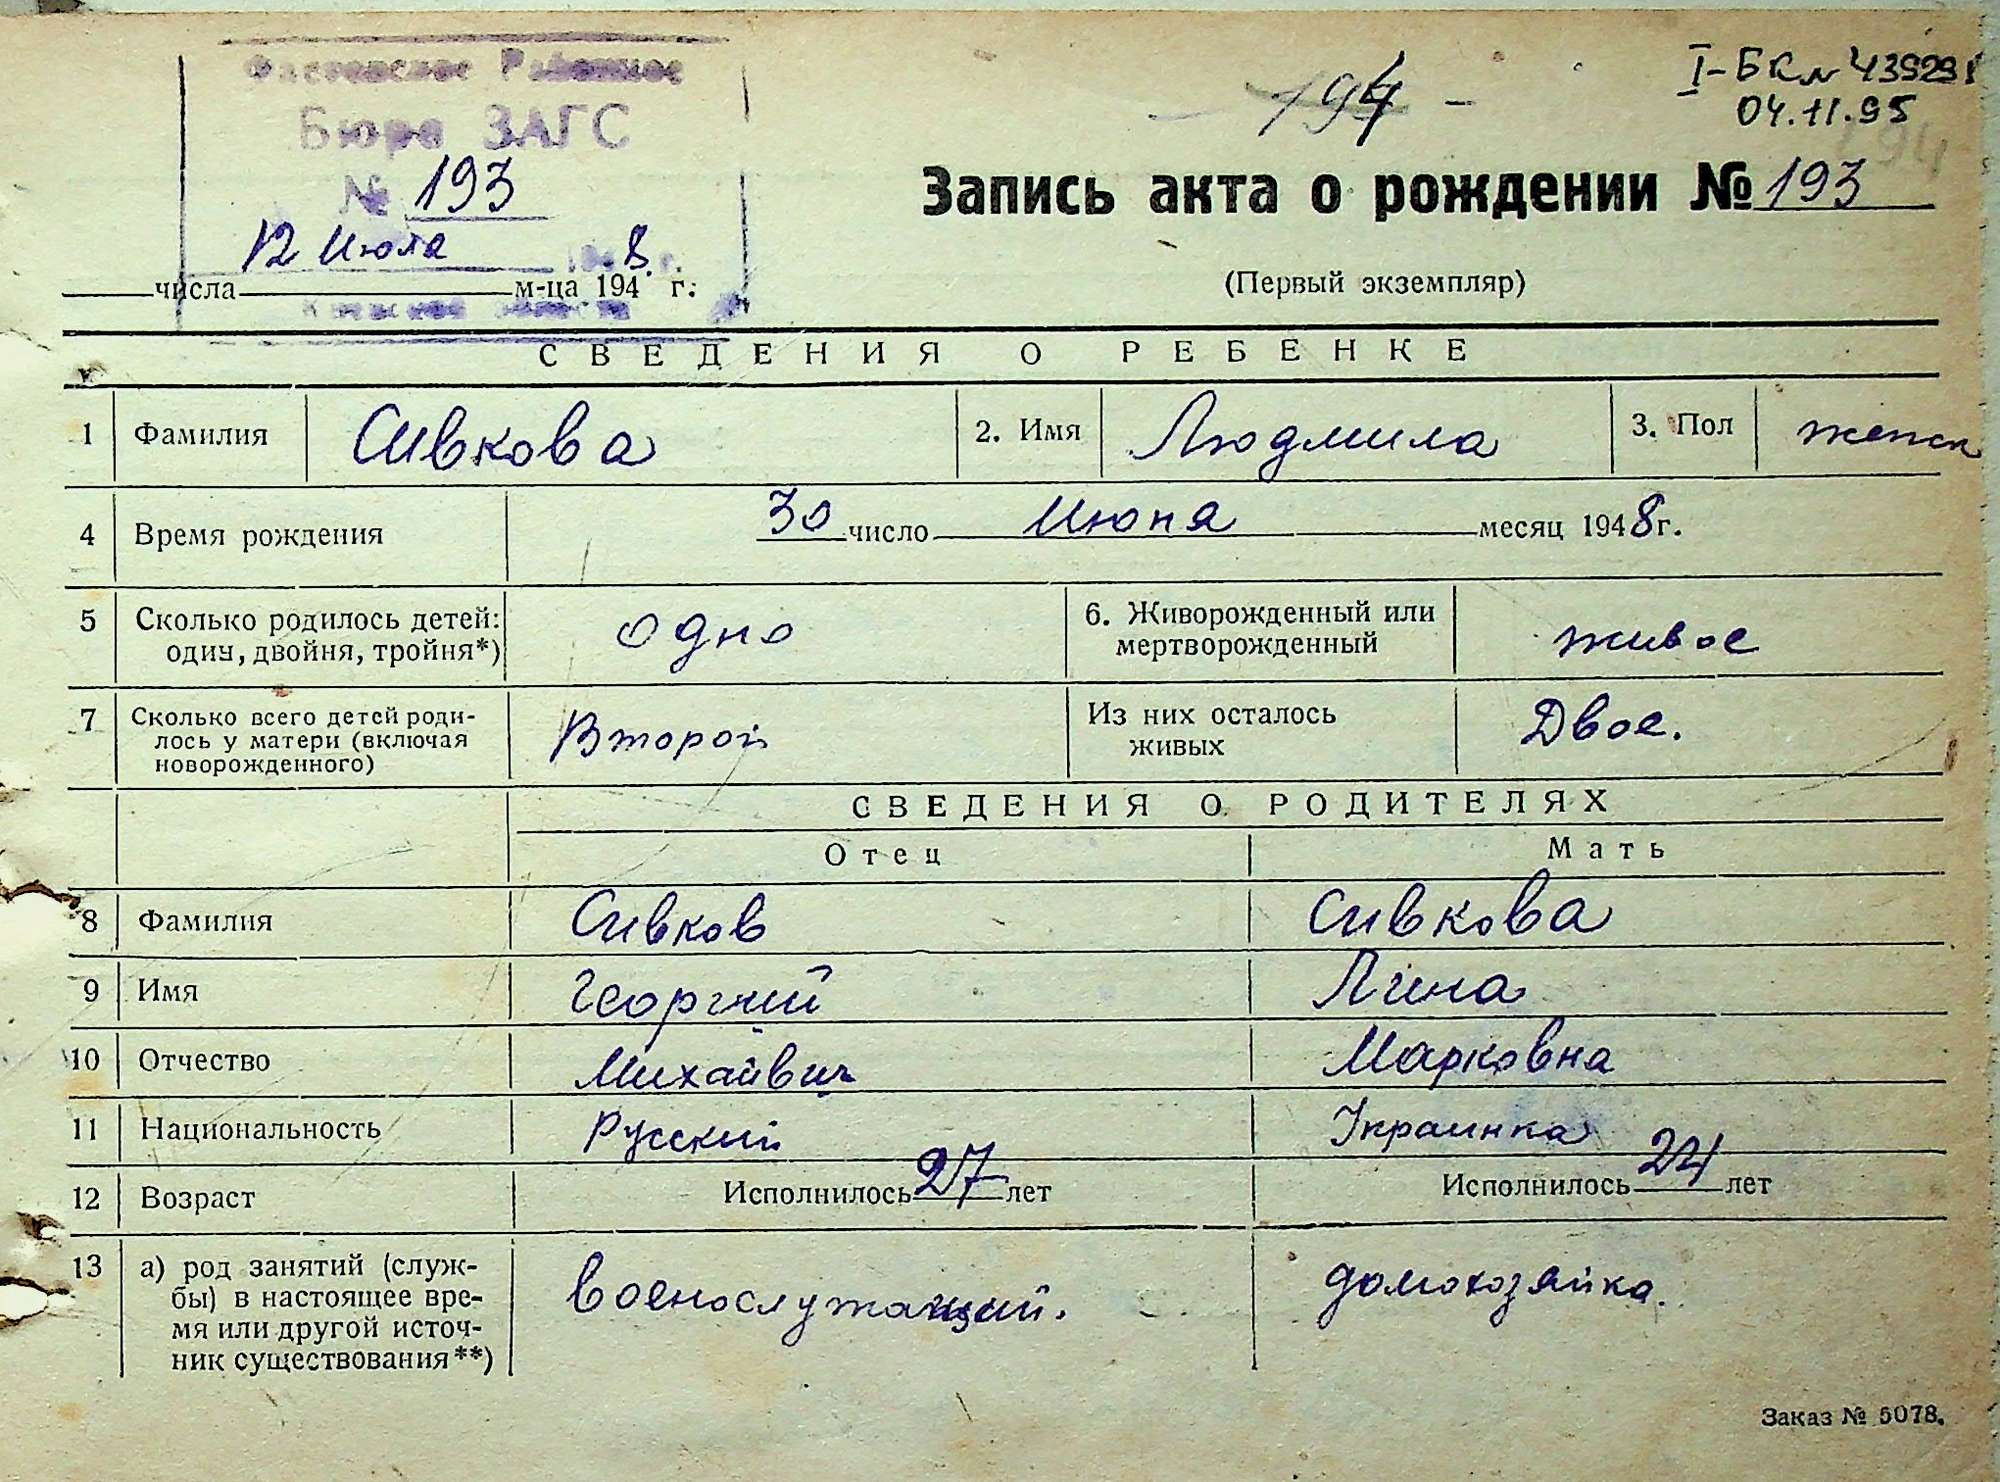 Фастовское Районное
Бюро ЗАГС
№ 193
12 Июля 1948 г.
числа м-ца 194 г.
Киевской области
194 -
I-БК № 439291
04.11.95
194
Запись акта о рождении № 193
(Первый экземпляр)
СВЕДЕНИЯ О РЕБЕНКЕ
1 Фамилия Сивкова 2. Имя Людмила 3. Пол женск
4 Время рождения 30 число Июня месяц 1948 г.
5 Сколько родилось детей: один, двойня, тройня*) одно 6. Живорожденный или мертворожденный живое
7 Сколько всего детей родилось у матери (включая новорожденного) Второй Из них осталось живых Двое.
СВЕДЕНИЯ О РОДИТЕЛЯХ
Отец Мать
8 Фамилия Сивков Сивкова
9 Имя Георгий Лина
10 Отчество Михайвич Марковна
11 Национальность Русский Украинка
12 Возраст Исполнилось 27 лет Исполнилось 24 лет
13 а) род занятий (служ-
бы) в настоящее вре-
мя или другой источ-
ник существования**) военослужащий. домохозяйка.
Заказ № 5078.